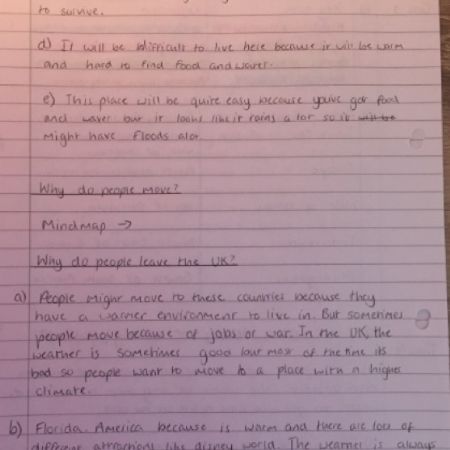 to survive.
d) It will be difficult to live here because it will be warm
and hard to find food and water.
e) This place will be quite easy because youve got food
and water but it looks like it rains a lot so it will be
might have floods alot.
Why do people move?
Mindmap →
Why do people leave the UK?
a) People might move to these countries because they
have a warmer environment to live in. But sometimes
people move because of jobs or war. In the UK, the
wearher is sometimes good but most of the time its
bad so people want to move to a place with a higher
climate.
b) Florida, America because is warm and there are lots of
different attractions like disney world. The wearher is always